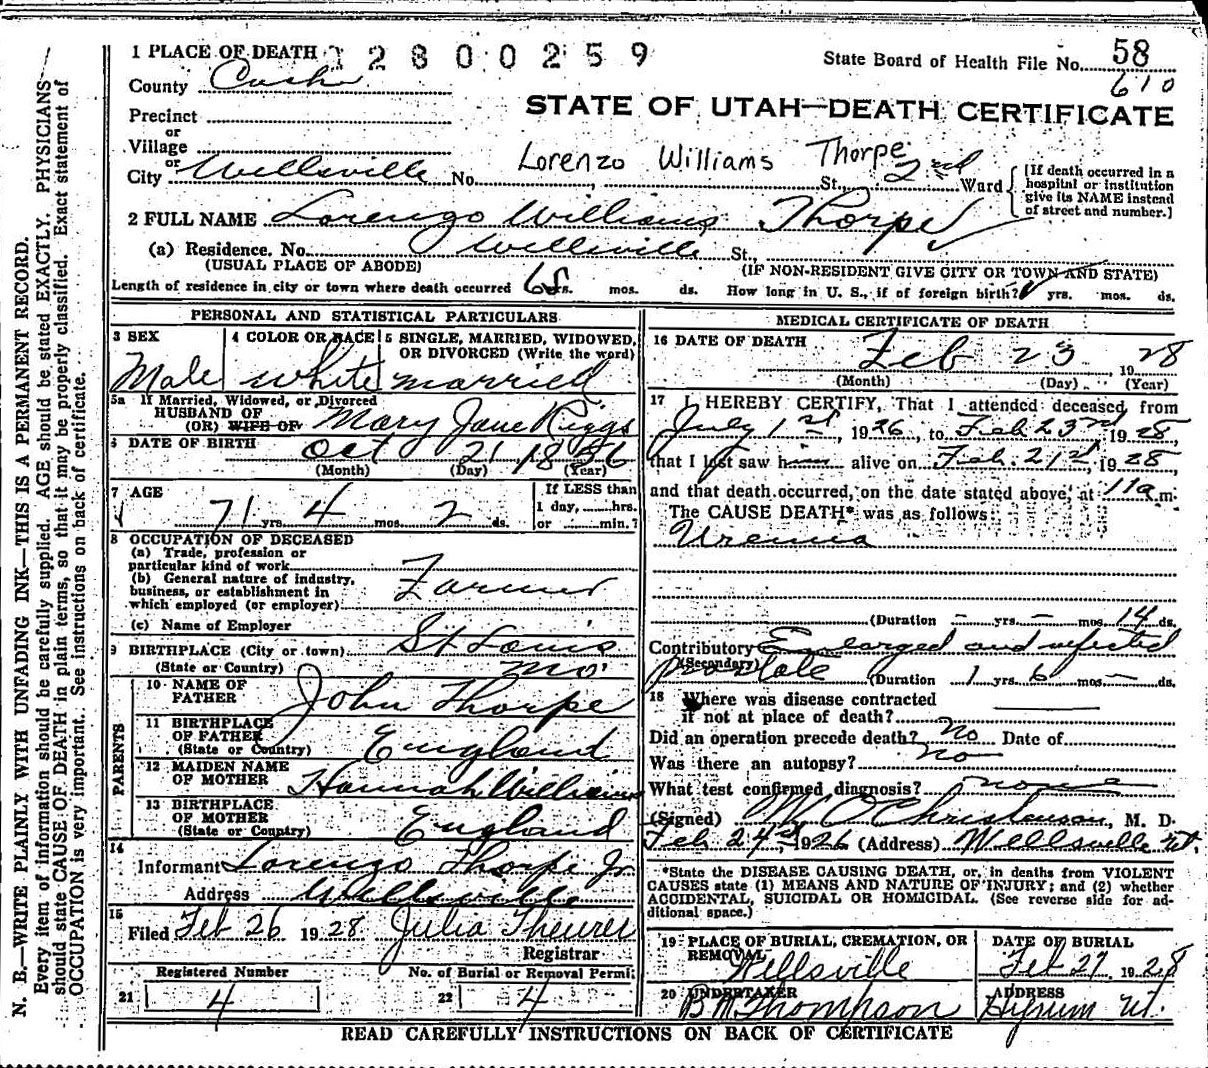 1 PLACE OF DEATH 1 2 8 0 0 2 5 9
State Board of Health File No. 58
610
County Cash
STATE OF UTAH—DEATH CERTIFICATE
Precinct
or
Village
or
City Wellsville No. St., 2nd Ward
Lorenzo Williams Thorpe
[If death occurred in a hospital or institution give its NAME instead of street and number.]
2 FULL NAME Lorenzo Williams Thorpe
(a) Residence. No. Wellsville St.,
(USUAL PLACE OF ABODE) (IF NON-RESIDENT GIVE CITY OR TOWN AND STATE)
Length of residence in city or town where death occurred 65 yrs. mos. ds. How long in U. S., if of foreign birth? yrs. mos. ds.
PERSONAL AND STATISTICAL PARTICULARS
3 SEX Male
4 COLOR OR RACE white
5 SINGLE, MARRIED, WIDOWED, OR DIVORCED (Write the word) married
5a If Married, Widowed, or Divorced
HUSBAND OF
(OR) WIFE OF Mary Jane Riggs
6 DATE OF BIRTH Oct 21 1856
(Month) (Day) (Year)
7 AGE 71 yrs. 4 mos. 2 ds.
If LESS than
1 day, hrs.
or min.?
8 OCCUPATION OF DECEASED
(a) Trade, profession or
particular kind of work
(b) General nature of industry,
business, or establishment in
which employed (or employer)
Farmer
(c) Name of Employer
9 BIRTHPLACE (City or town) St Louis
(State or Country) Mo.
PARENTS
10 NAME OF
FATHER John Thorpe
11 BIRTHPLACE
OF FATHER
(State or Country) England
12 MAIDEN NAME
OF MOTHER Hannah Williams
13 BIRTHPLACE
OF MOTHER
(State or Country) England
14
Informant Lorenzo Thorpe Jr
Address Wellsville
15
Filed Feb 26 1928 Julia Theurer
Registrar
Registered Number
21 4
No. of Burial or Removal Permit
22 4
MEDICAL CERTIFICATE OF DEATH
16 DATE OF DEATH
Feb 23, 1928
(Month) (Day) (Year)
17 I HEREBY CERTIFY, That I attended deceased from
July 1st, 1926, to Feb 23rd 1928,
that I last saw him alive on Feb. 21st, 1928
and that death occurred, on the date stated above, at 11 a m.
The CAUSE DEATH* was as follows:
Uremia
(Duration – yrs. – mos. 14 ds.
Contributory Enlarged and infected
(Secondary) prostate (Duration 1 yrs 6 mos – ds.
18 Where was disease contracted
if not at place of death?
Did an operation precede death? no Date of
Was there an autopsy? no
What test confirmed diagnosis? none
(Signed) Christenson, M. D.
Feb 24, 1926 (Address) Wellsville Ut.
*State the DISEASE CAUSING DEATH, or, in deaths from VIOLENT
CAUSES state (1) MEANS AND NATURE OF INJURY; and (2) whether
ACCIDENTAL, SUICIDAL OR HOMICIDAL. (See reverse side for ad-
ditional space.)
19 PLACE OF BURIAL, CREMATION, OR
REMOVAL
Wellsville
DATE OF BURIAL
Feb 27 1928
20 UNDERTAKER
Thompson
ADDRESS
Hyrum Ut.
READ CAREFULLY INSTRUCTIONS ON BACK OF CERTIFICATE
N. B.—WRITE PLAINLY WITH UNFADING INK—THIS IS A PERMANENT RECORD.
Every item of information should be carefully supplied. AGE should be stated EXACTLY. PHYSICIANS
should state CAUSE OF DEATH in plain terms, so that it may be properly classified. Exact statement of
OCCUPATION is very important. See instructions on back of certificate.